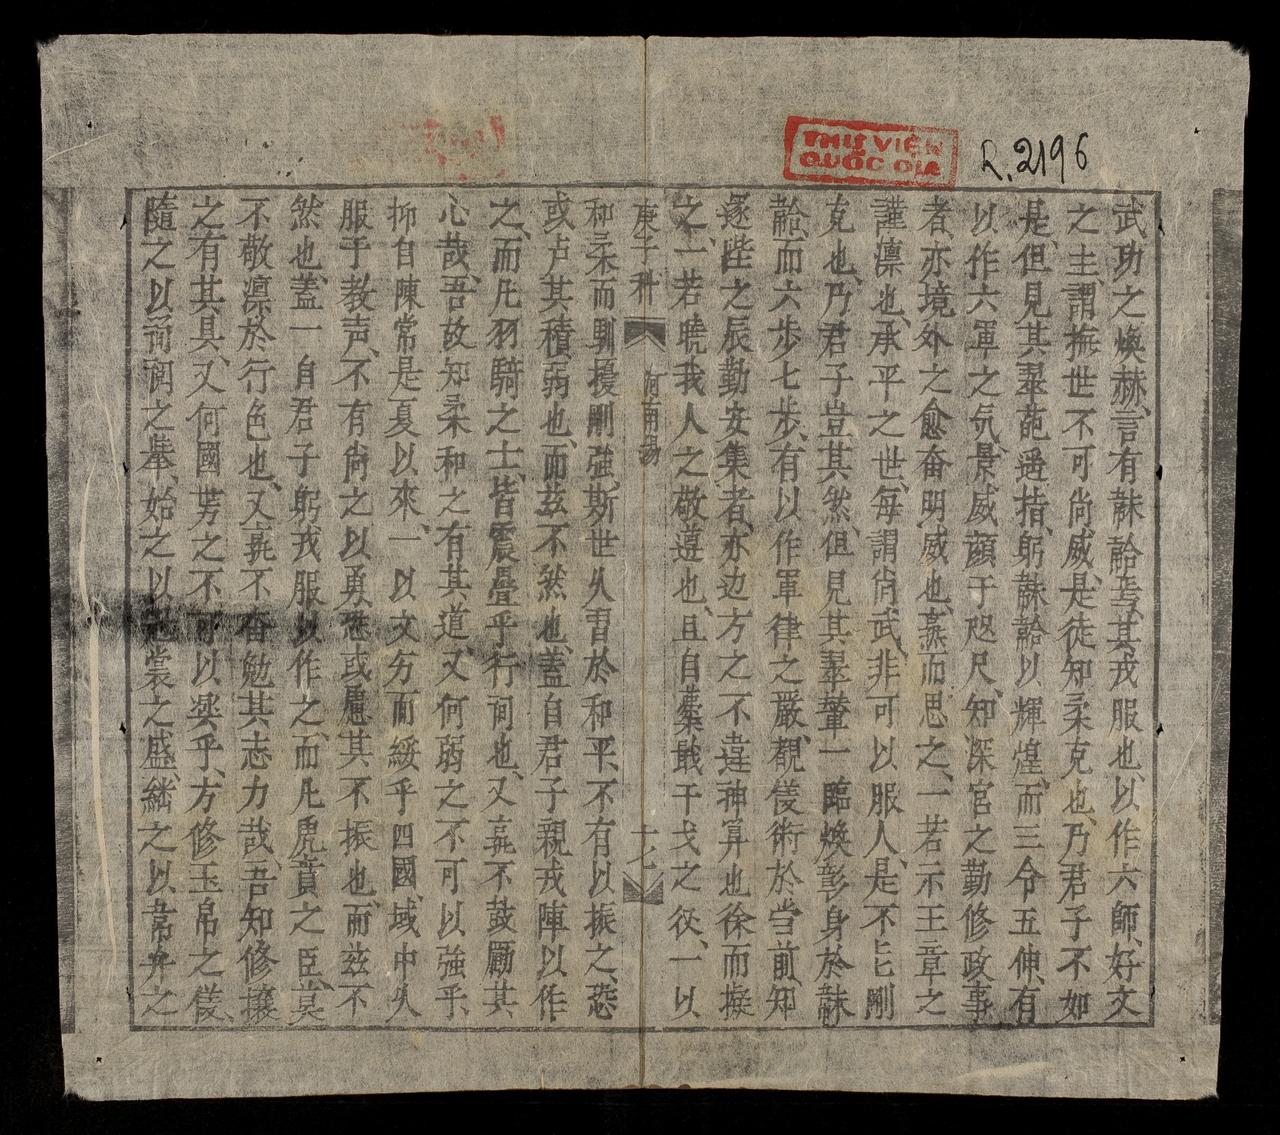 THƯ VIỆN
QUỐC GIA
R. 2196
武功之煥赫、言有韎韐焉、其戎服也、以作六師、好文
之主、謂撫世不可尚威、是徒知柔克也、乃君子不如
是、但見其翠葩遥指、躬韎韐以輝煌、而三令五伸、有
以作六軍之氛、景威顔于咫尺、知深宮之勤修政事
者、亦境外之愈奋明威也、㷊而思之、一若示王章之
謹凛也、承平之世、每謂尚武、非可以服人、是不㠯剛
克也、乃君子豈其然、但見其翠華一臨、煥彰身於韎
韐、而六步七步、有以作軍律之嚴、覩儀術於当前、知
遂陛之辰勤安集者、亦边方之不違神算也、徐而擬
之、一若曉我人之敬遵也、且自櫜戢干戈之後、一以
庚子科 河南場 十七
和柔而馴擾剛強、斯世久習於和平、不有以振之、恐
或卢其積弱也、而茲不然也、盖自君子親戎陣以作
之、而凡羽騎之士、皆震疊乎行间也、又㷊不鼓勵其
心哉、吾故知柔和之有其道、又何弱之不可以強乎、
抑自陳常是夏以來、一以文匇而綏乎四國、域中久
服于教声、不有尚之以勇、恐或慮其不振也、而兹不
然也、蓋一自君子躬戎服以作之、而凡虎賁之臣、莫
不敬凛於行色也、又㷊不奋勉其志力哉、吾知修攘
之有其具、又何國势之不可以奌乎、方修玉帛之儀、
隨之以

裳之盛、繼之以韋弁之